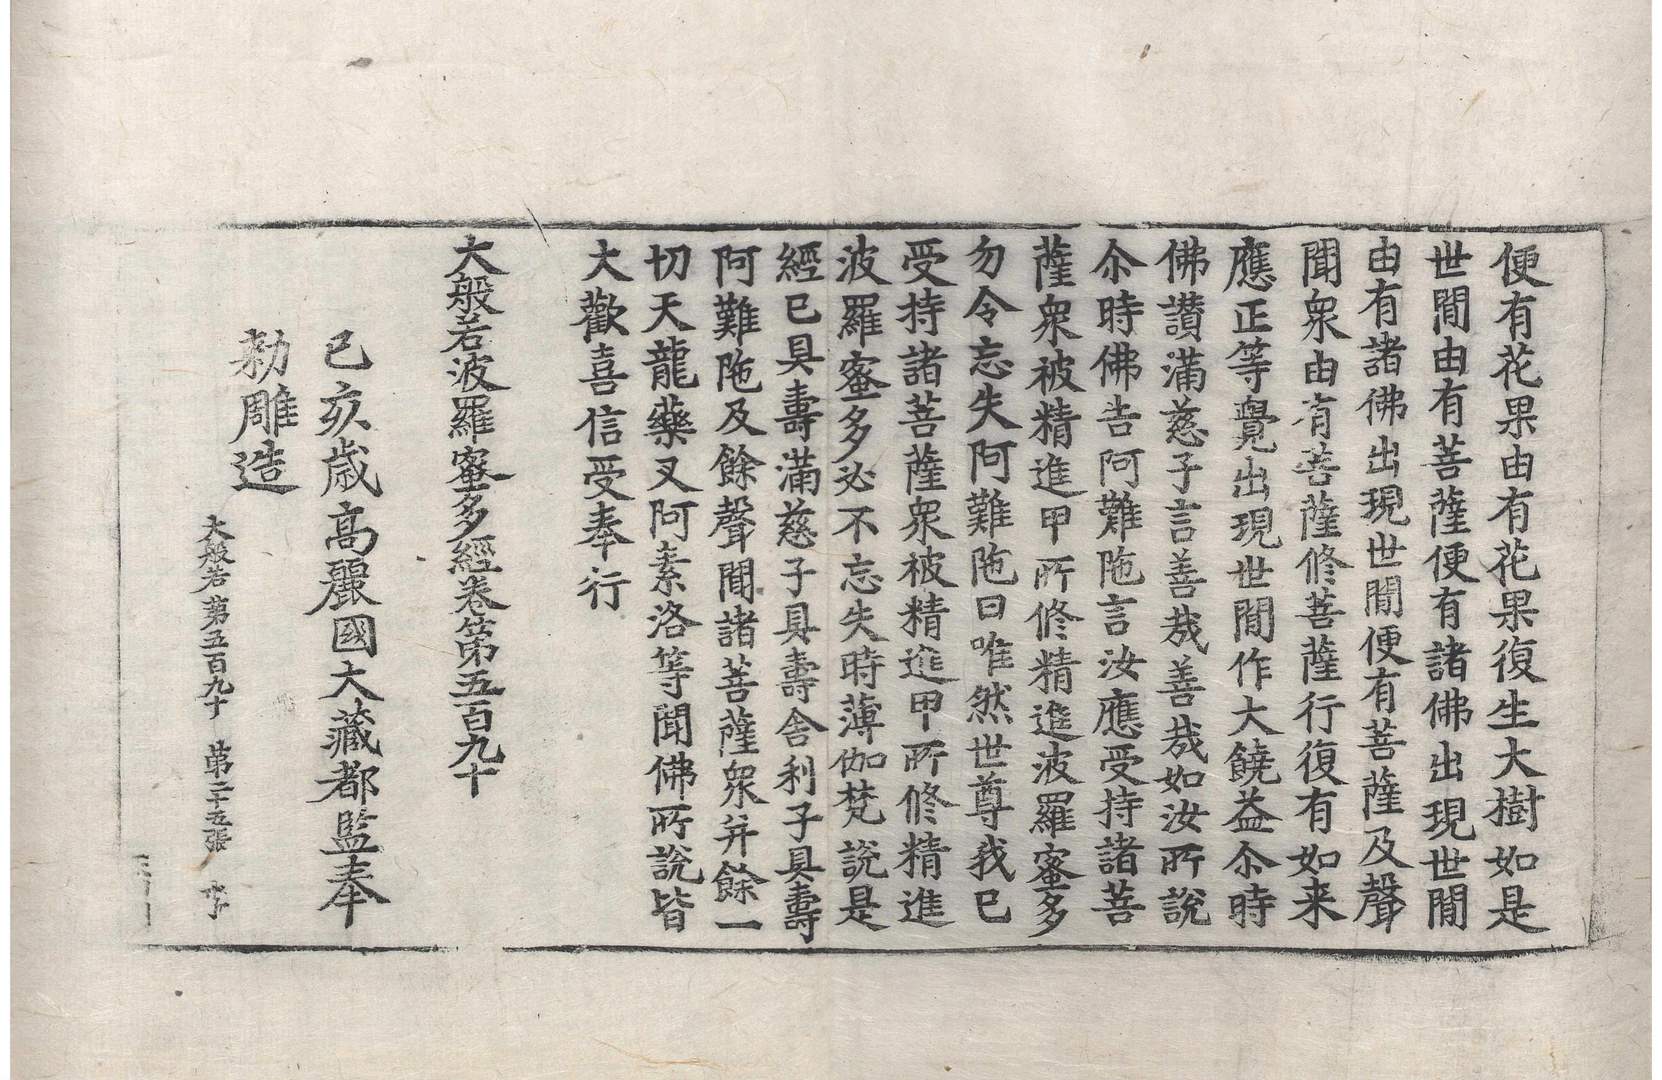 便有花果由有花果復生大樹如是
世間由有菩薩便有諸佛出現世間
由有諸佛出現世間便有菩薩及聲
聞衆由有菩薩修菩薩行復有如来
應正等覺出現世間作大饒益尒時
佛讃滿慈子言善哉善哉如汝所說
尒時佛告阿難陁言汝應受持諸菩
薩衆被精進甲所修精進波羅蜜多
勿令忘失阿難陁曰唯然世尊我已
受持諸菩薩衆被精進甲所修精進
波羅蜜多必不忘失時薄伽梵說是
經已具壽滿慈子具壽舍利子具壽
阿難陁及餘聲聞諸菩薩衆并餘一
切天龍藥叉阿素洛等聞佛所說皆
大歡喜信受奉行
大般若波羅蜜多經卷第五百九十
己亥歳高麗國大藏都監奉
勅雕造
大般若第五百九十 第二十五張 李